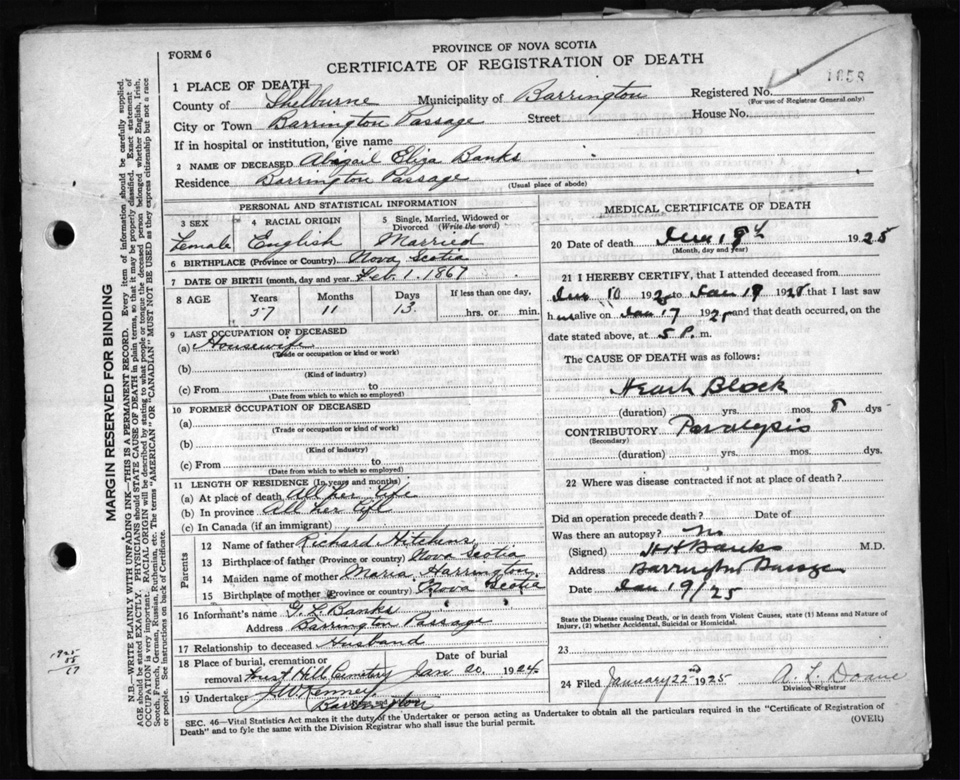 PROVINCE OF NOVA SCOTIA
FORM 6
CERTIFICATE OF REGISTRATION OF DEATH
1 PLACE OF DEATH
1858
Registered No.
(For use of Registrar General only)
County of Shelburne Municipality of Barrington
City or Town Barrington Passage Street House No.
If in hospital or institution, give name
2 NAME OF DECEASED Abigail Eliza Banks
Residence Barrington Passage
(Usual place of abode)
PERSONAL AND STATISTICAL INFORMATION
3 SEX Female
4 RACIAL ORIGIN English
5 Single, Married, Widowed or Divorced (Write the word) Married
6 BIRTHPLACE (Province or Country) Nova Scotia
7 DATE OF BIRTH (month, day and year) Feb. 1. 1867
8 AGE Years Months Days If less than one day,
57 11 13. hrs. or min.
9 LAST OCCUPATION OF DECEASED
(a) Housewife
(Trade or occupation or kind or work)
(b)
(Kind of industry)
(c) From to
(Date from which to which so employed)
10 FORMER OCCUPATION OF DECEASED
(a)
(Trade or occupation or kind of work)
(b)
(Kind of industry)
(c) From to
(Date from which to which so employed)
11 LENGTH OF RESIDENCE (In years and months)
(a) At place of death All her Life
(b) In province All her Life
(c) In Canada (if an immigrant)
Parents
12 Name of father Richard Hitchens
13 Birthplace of father (Province or country) Nova Scotia
14 Maiden name of mother Maria Harrington
15 Birthplace of mother (Province or country) Nova Scotia
16 Informant's name G. L. Banks
Address Barrington Passage
17 Relationship to deceased Husband
18 Place of burial, cremation or removal Cemetery
Date of burial Jan 20. 1924
19 Undertaker J W Kenney
Barrington
MEDICAL CERTIFICATE OF DEATH
20 Date of death 1925
(Month, day and year)
21 I HEREBY CERTIFY, that I attended deceased from
10 192 to Jan 19 1925 that I last saw
h alive on Jan 17 1925 and that death occurred, on the
date stated above, at 5 P. m.
The CAUSE OF DEATH was as follows:
Heart Block
(duration) yrs. mos. 8 dys
CONTRIBUTORY Paralysis
(Secondary)
(duration) yrs. mos. dys.
22 Where was disease contracted if not at place of death?
Did an operation precede death? Date of
Was there an autopsy? No
(Signed) Banks M.D.
Address Barrington Passage
Date Jan 19/25
State the Disease causing Death, or in death from Violent Causes, state (1) Means and Nature of
Injury, (2) whether Accidental, Suicidal or Homicidal.
23
24 Filed January 22nd 1925 A. L. Doane
Division Registrar
SEC. 46—Vital Statistics Act makes it the duty of the Undertaker or person acting as Undertaker to obtain all the particulars required in the "Certificate of Registration of
Death" and to fyle the same with the Division Registrar who shall issue the burial permit.
(OVER)
MARGIN RESERVED FOR BINDING
N.B.—WRITE PLAINLY WITH UNFADING INK—THIS IS A PERMANENT RECORD. Every item of information should be carefully supplied.
AGE should be stated EXACTLY. PHYSICIANS should STATE CAUSE OF DEATH in plain terms, so that it may be properly classified. Exact statement of
OCCUPATION is very important. RACIAL ORIGIN will be described by stating to what people or tongue the deceased person belonged whether English, Irish,
Scotch, French, German, Russian, Ruthenian, etc. The terms "AMERICAN" or "CANADIAN" MUST NOT BE USED as they express citizenship but not a race
or people. See instructions on back of Certificate.
1925